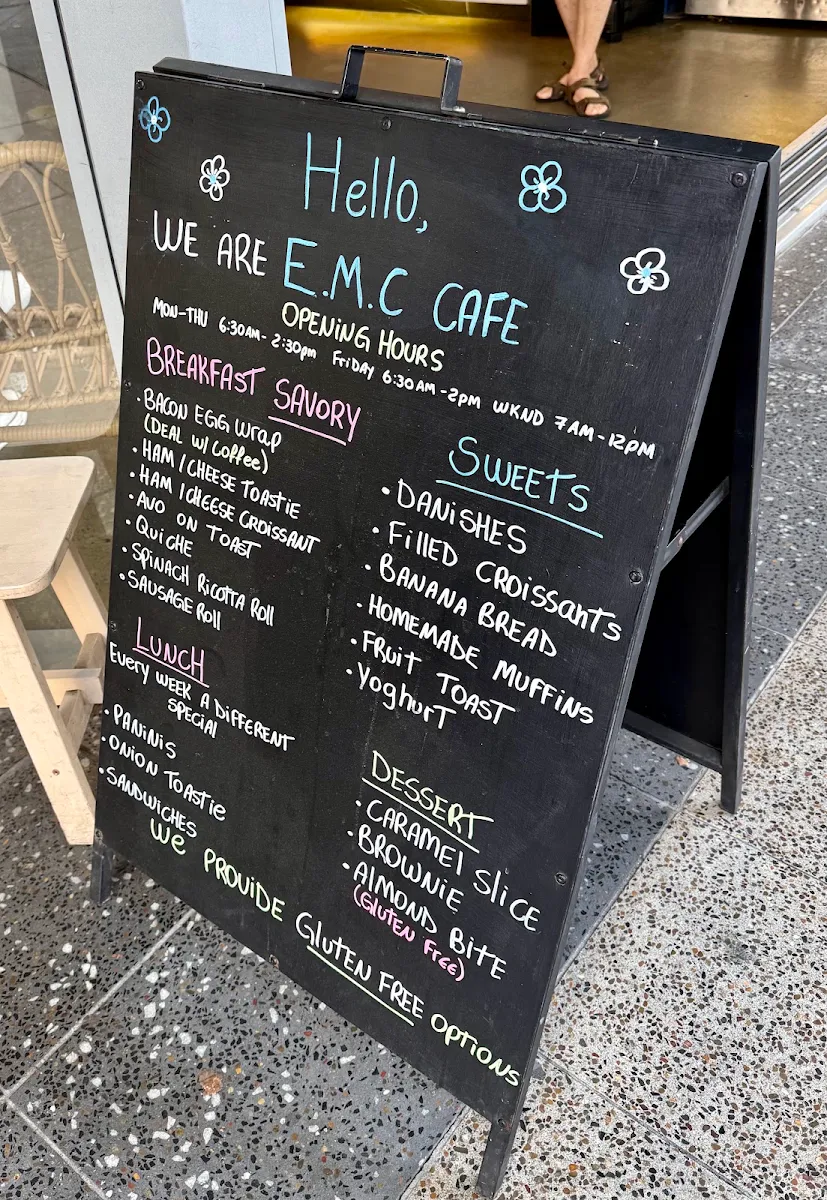 Hello,
WE ARE E.M.C CAFE
OPENING HOURS
MON-THU 6:30AM-2:30pm FriDAY 6:30AM-2PM WKND 7AM-12PM
BREAKFAST SAVORY
• BACON EGG Wrap
(DEAL W/ Coffee)
• HAM/CHEESE TOASTIE
• HAM/CHEESE CROISSANT
• AVO ON TOAST
• QuiCHE
• SPINACH RICOTTA Roll
• SAUSAGE Roll
LUNCH
Every WEEK A DiFFERENT
SPECIAL
• PANiNiS
• ONION TOASTie
• SANDWICHES
SWEETS
• DANiSHES
• FillED CROissanTs
• BANANA BREAD
• HOMEMADE MUFFiNS
• FRuiT TOAST
• YoghurT
DESSERT
• CARAMEl SliCE
• BROWNiE
• AlMOND BiTE
(GluTEN FREE)
We PROViDE GluTEN FREE OPTiONS